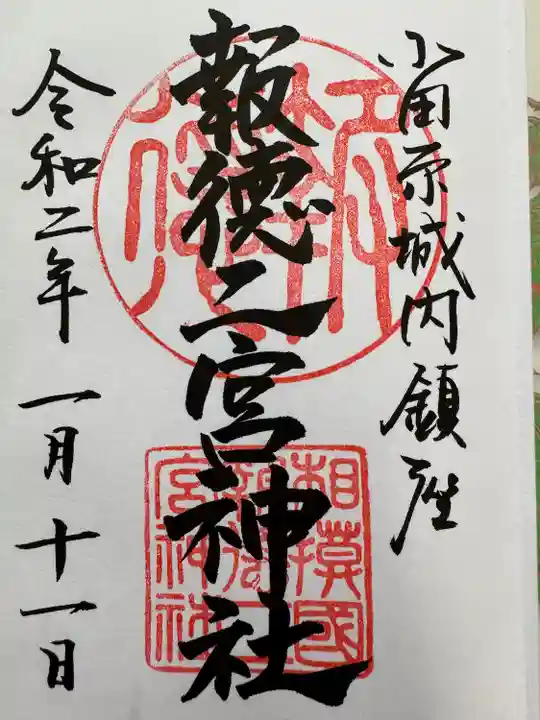 小田原城内鎮座
報徳二宮神社
令和二年 一月 十一日
相模國
報徳二
宮神社